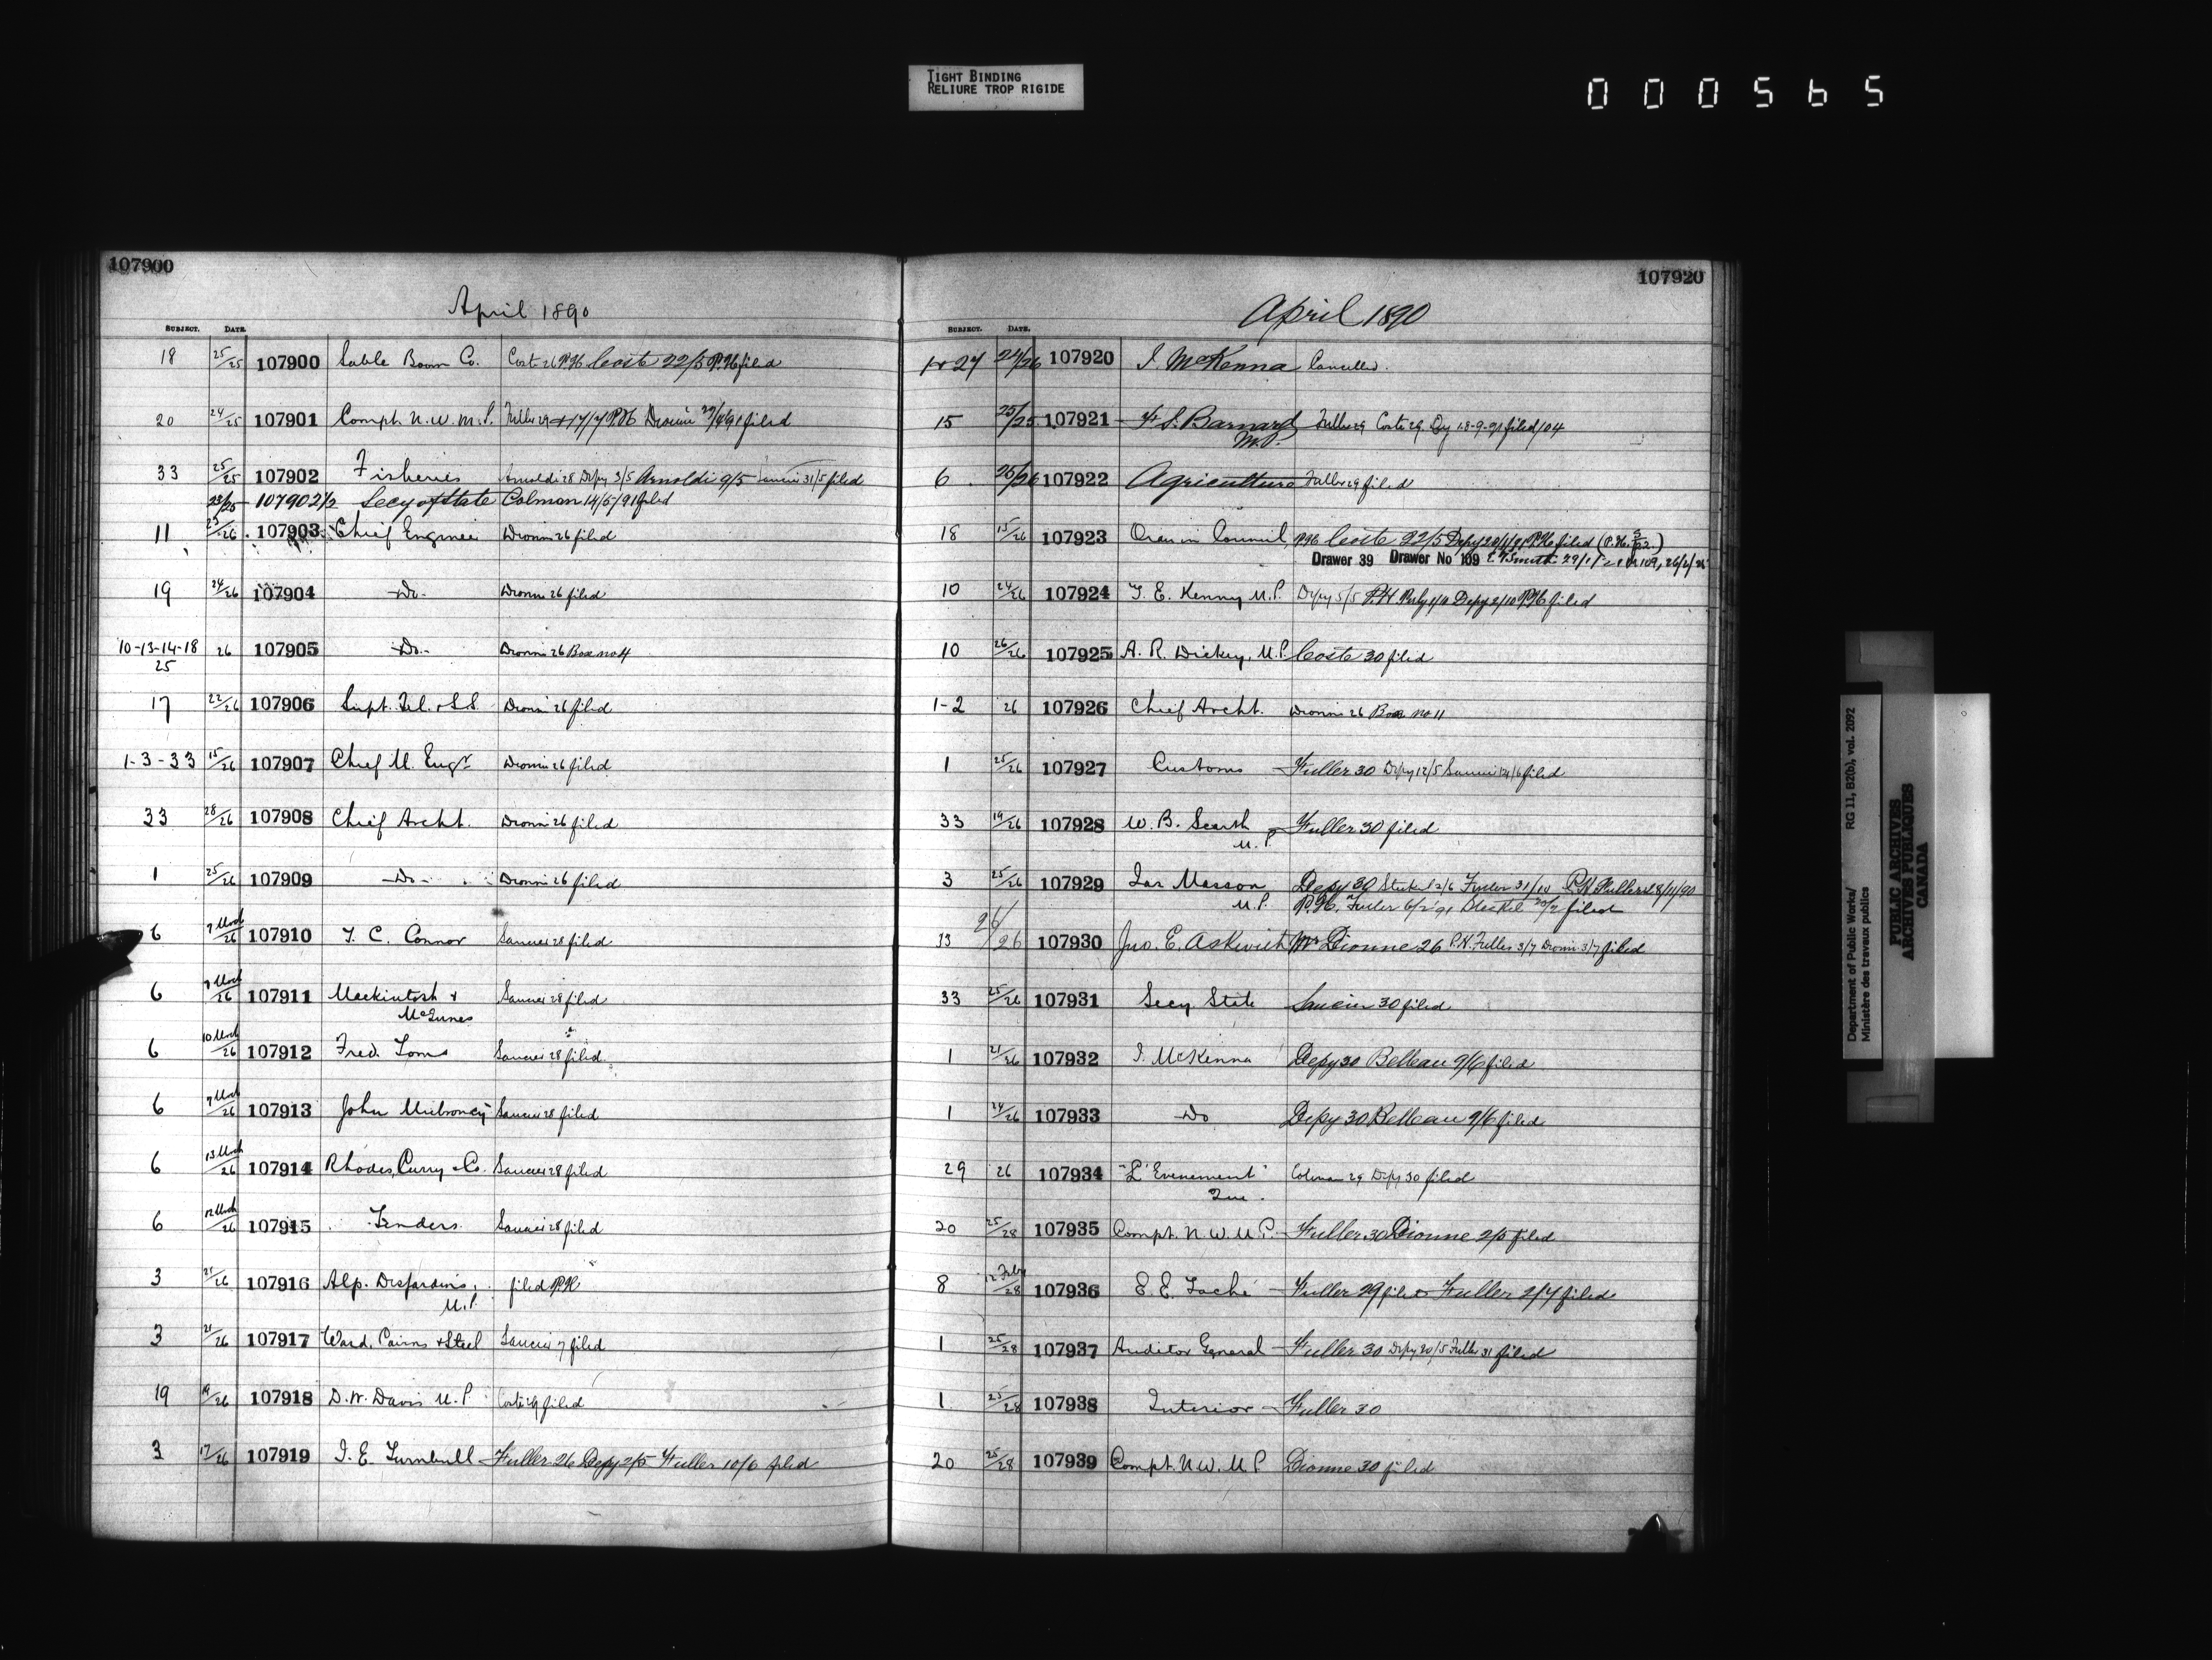 TIGHT BINDING
RELIURE TROP RIGIDE
000565
107900
April 1890
SUBJECT. DATE.
18 25/25 107900 Sable Boom Co. Coste 26 P.H. Coste 22/5 P.H. filed
20 24/25 107901 Compt. N.W.M.P. Fuller 29 17/7 P.H. filed
33 25/25 107902 Fisheries Arnoldi 28 Depy 3/5 Arnoldi 9/5 Saucier 31/5 filed
23/25 107902 1/2 Secy of State Colman 14/5/91 filed
11 23/26 107903 Chief Engineer Dionne 26 filed
19 24/26 107904 Do. Dionne 26 filed
10-13-14-18 26 107905 Do. Dionne 26 Box no 4
25
17 22/26 107906 Supt. Tel. & S.S. Dionne 26 filed
1-3-33 15/26 107907 Chief M. Engr Dionne 26 filed
33 28/26 107908 Chief Archt. Dionne 26 filed
1 25/26 107909 Do. Dionne 26 filed
6 7 Mch/26 107910 T. C. Connor Saucier 28 filed
6 7 Mch/26 107911 Mackintosh & Saucier 28 filed
McInnes
6 10 Mch/26 107912 Fred. Toms Saucier 28 filed
6 7 Mch/26 107913 John Mulroney Saucier 28 filed
6 13 Mch/26 107914 Rhodes, Curry & Co. Saucier 28 filed
6 12 Mch/26 107915 Tenders Saucier 28 filed
3 21/26 107916 Alp. Desjardins, filed P.H.
M.P.
3 21/26 107917 Ward, Cairns & Steel Saucier 7 filed
19 19/26 107918 D.W. Davis M.P. Coste 29 filed
3 17/26 107919 J. E. Turnbull Fuller 26 Depy 2/5 Fuller 10/6 filed
107920
April 1890
SUBJECT. DATE.
1 & 27 24/26 107920 J. McKenna Cancelled.
15 25/25 107921 F. S. Barnard Fuller 29 Coste 29. 18-9-91 filed 104
M.P.
6 26/26 107922 Agriculture Fuller 29 filed
18 15/26 107923 Order in Council P.H. Coste 22/5 Depy 20/1/91 P.H. filed
Drawer 39 Drawer No 109
10 24/26 107924 T. E. Kenny M.P. Depy 5/5 P.H. Depy 2/10 P.H. filed
10 26/26 107925 A. R. Dickey, M.P. Coste 30 filed
1-2 26 107926 Chief Archt. Dionne 26 Box no 11
1 25/26 107927 Customs Fuller 30 Depy 12/5 Saucier 24/6 filed
33 19/26 107928 W. B. Scarth Fuller 30 filed
M.P.
3 25/26 107929 Jas Masson Depy 30 Steckel 2/6 Fuller 31/10 P.H. Fuller 18/11/90
M.P. P.H. Fuller 6/2/91 Steckel 20/2 filed
33 26/26 107930 Jno. E. Askwith Mr Dionne 26 P.H. Fuller 3/7 Dionne 3/7 filed
33 25/26 107931 Secy State Saucier 30 filed
1 21/26 107932 J. McKenna Depy 30 Belleau 9/6 filed
1 24/26 107933 Do Depy 30 Belleau 9/6 filed
29 26 107934 "L'Evenement" Colman 29 Depy 30 filed
Que.
20 25/28 107935 Compt. N.W.M.P. Fuller 30 Dionne 2/5 filed
8 12 Feby/28 107936 E. E. Taché Fuller 29 filed Fuller 2/7 filed
1 25/28 107937 Auditor General Fuller 30 Depy 20/5 Fuller 31 filed
1 25/28 107938 Interior Fuller 30
20 25/28 107939 Compt. N.W.M.P Dionne 30 filed
Department of Public Works/ RG 11, B2(b), vol. 2092
Ministère des travaux publics
PUBLIC ARCHIVES
ARCHIVES PUBLIQUES
CANADA